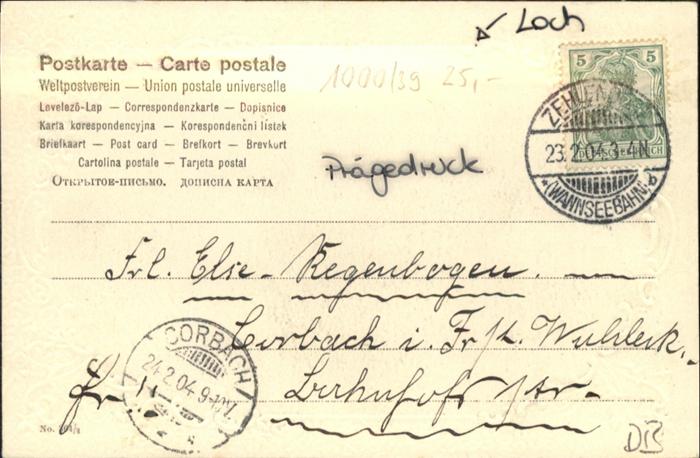 Loch
Postkarte — Carte postale
Weltpostverein — Union postale universelle
Levelező-Lap — Correspondenzkarte — Dopisnice
Karta korespondencyjna — Korespondenční lístek
Briefkaart — Post card — Brefkort — Brevkort
Cartolina postale — Tarjeta postal
Открытое-письмо. дописна карта
1000/39 25,-
Prägedruck
5 5
ZEHLEN
23.2.04.3-4N
*(WANNSEEBAHN)*a
Frl. Else Regenbogen.
Corbach i.
Bahnhofstr.
CORBACH
24.2.04.9-10V.
No.
DB